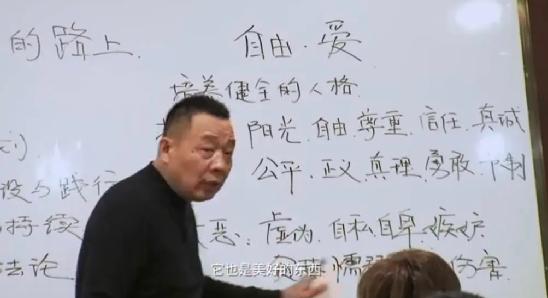 的路上. 自由·爱
培养健全的人格.
阳光.自由.尊重.信任.真诚
公平.正义.真理.勇敢.
设与践行
恶:虚伪.自私.自卑.嫉妒
持续
法论 懦 伤害
它也是美好的东西